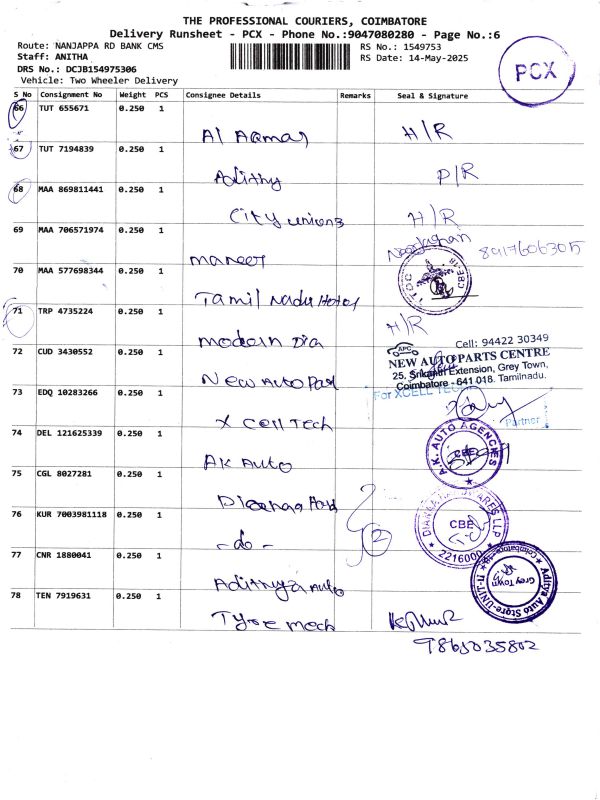 THE PROFESSIONAL COURIERS, COIMBATORE
Delivery Runsheet - PCX - Phone No.:9047080280 - Page No.:6
Route: NANJAPPA RD BANK CMS
RS No.: 1549753
Staff: ANITHA
RS Date: 14-May-2025
DRS No.: DCJB154975306
Vehicle: Two Wheeler Delivery
PCX
S No Consignment No Weight PCS Consignee Details Remarks Seal & Signature
66 TUT 655671 0.250 1 Al H/R
67 TUT 7194839 0.250 1 Adithy P/R
68 MAA 869811441 0.250 1 City unions H/R
69 MAA 706571974 0.250 1 maneet 8917606305
70 MAA 577698344 0.250 1 Tamil Nadu Hotel
71 TRP 4735224 0.250 1 modern Dia H/R
72 CUD 3430552 0.250 1 New Auto Part
APC
Cell: 94422 30349
NEW AUTO PARTS CENTRE
25, Srikanth Extension, Grey Town,
Coimbatore - 641 018. Tamilnadu.
73 EDQ 10283266 0.250 1 X Cell Tech
For XCELL TEC
Partner
74 DEL 121625339 0.250 1 AK Auto
A.K. AUTO AGENCIES
CBE
75 CGL 8027281 0.250 1
76 KUR 7003981118 0.250 1 - do - 2
CBE
2216000
77 CNR 1880041 0.250 1 Adithya Auto
Aditya Auto Store-UNIT-II
Grey Town
78 TEN 7919631 0.250 1 Tyre mech
9865035802